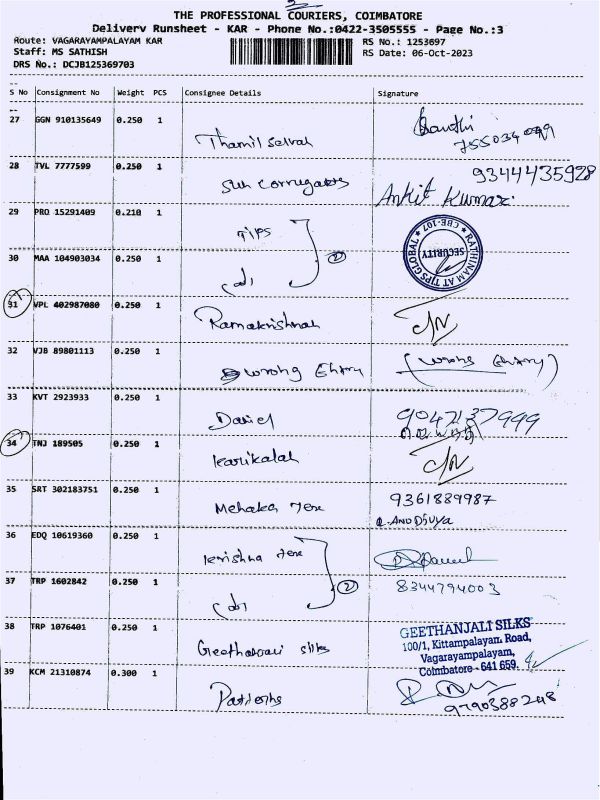 THE PROFESSIONAL COURIERS, COIMBATORE
Delivery Runsheet - KAR - Phone No.:0422-3505555 - Page No.:3
Route: VAGARAYAMPALAYAM KAR
RS No.: 1253697
Staff: MS SATHISH
RS Date: 06-Oct-2023
DRS No.: DCJB125369703
S No Consignment No Weight PCS Consignee Details Signature
27 GGN 910135649 0.250 1
Thamil selvan
28 TVL 7777599 0.250 1 9344435928
Sun corrugates Ankit Kumar.
29 PRQ 15291409 0.210 1
TIPS
30 MAA 104903034 0.250 1 (2)
RATHINAM AT TIPS GLOBAL * CBE-107 *
SECURITY
31 VPL 402987080 0.250 1
Ramakrishnan
32 VJB 89801113 0.250 1
wrong Entry (wrong Entry)
33 KVT 2923933 0.250 1
Daniel 9047137999
34 TNJ 189505 0.250 1
karikalan
35 SRT 302183751 0.250 1
Mehaka Tex 9361889987
36 EDQ 10619360 0.250 1
krishna Tex
37 TRP 1602842 0.250 1 (2) 8344794003
38 TRP 1076401 0.250 1
silks
GEETHANJALI SILKS
100/1, Kittampalayam Road,
Vagarayampalayam,
Coimbatore - 641 659.
39 KCM 21310874 0.300 1
9790388248